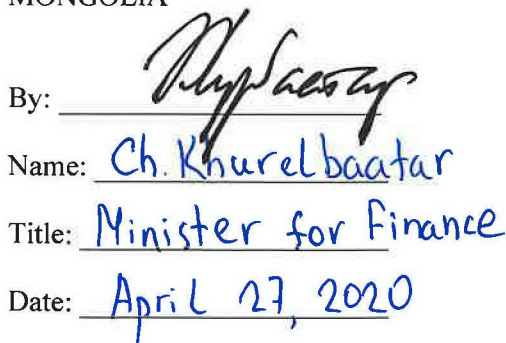 MONGOLIA
By:
Name: Ch. Khurelbaatar
Title: Minister for Finance
Date: April 27, 2020